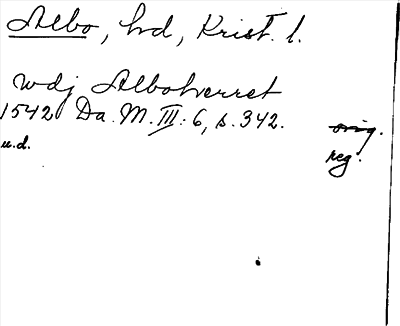 Albo, hd, Krist. l.
wdj Albohærret
1542 Da. M. III: 6, s. 342. orig.
u.d. reg.